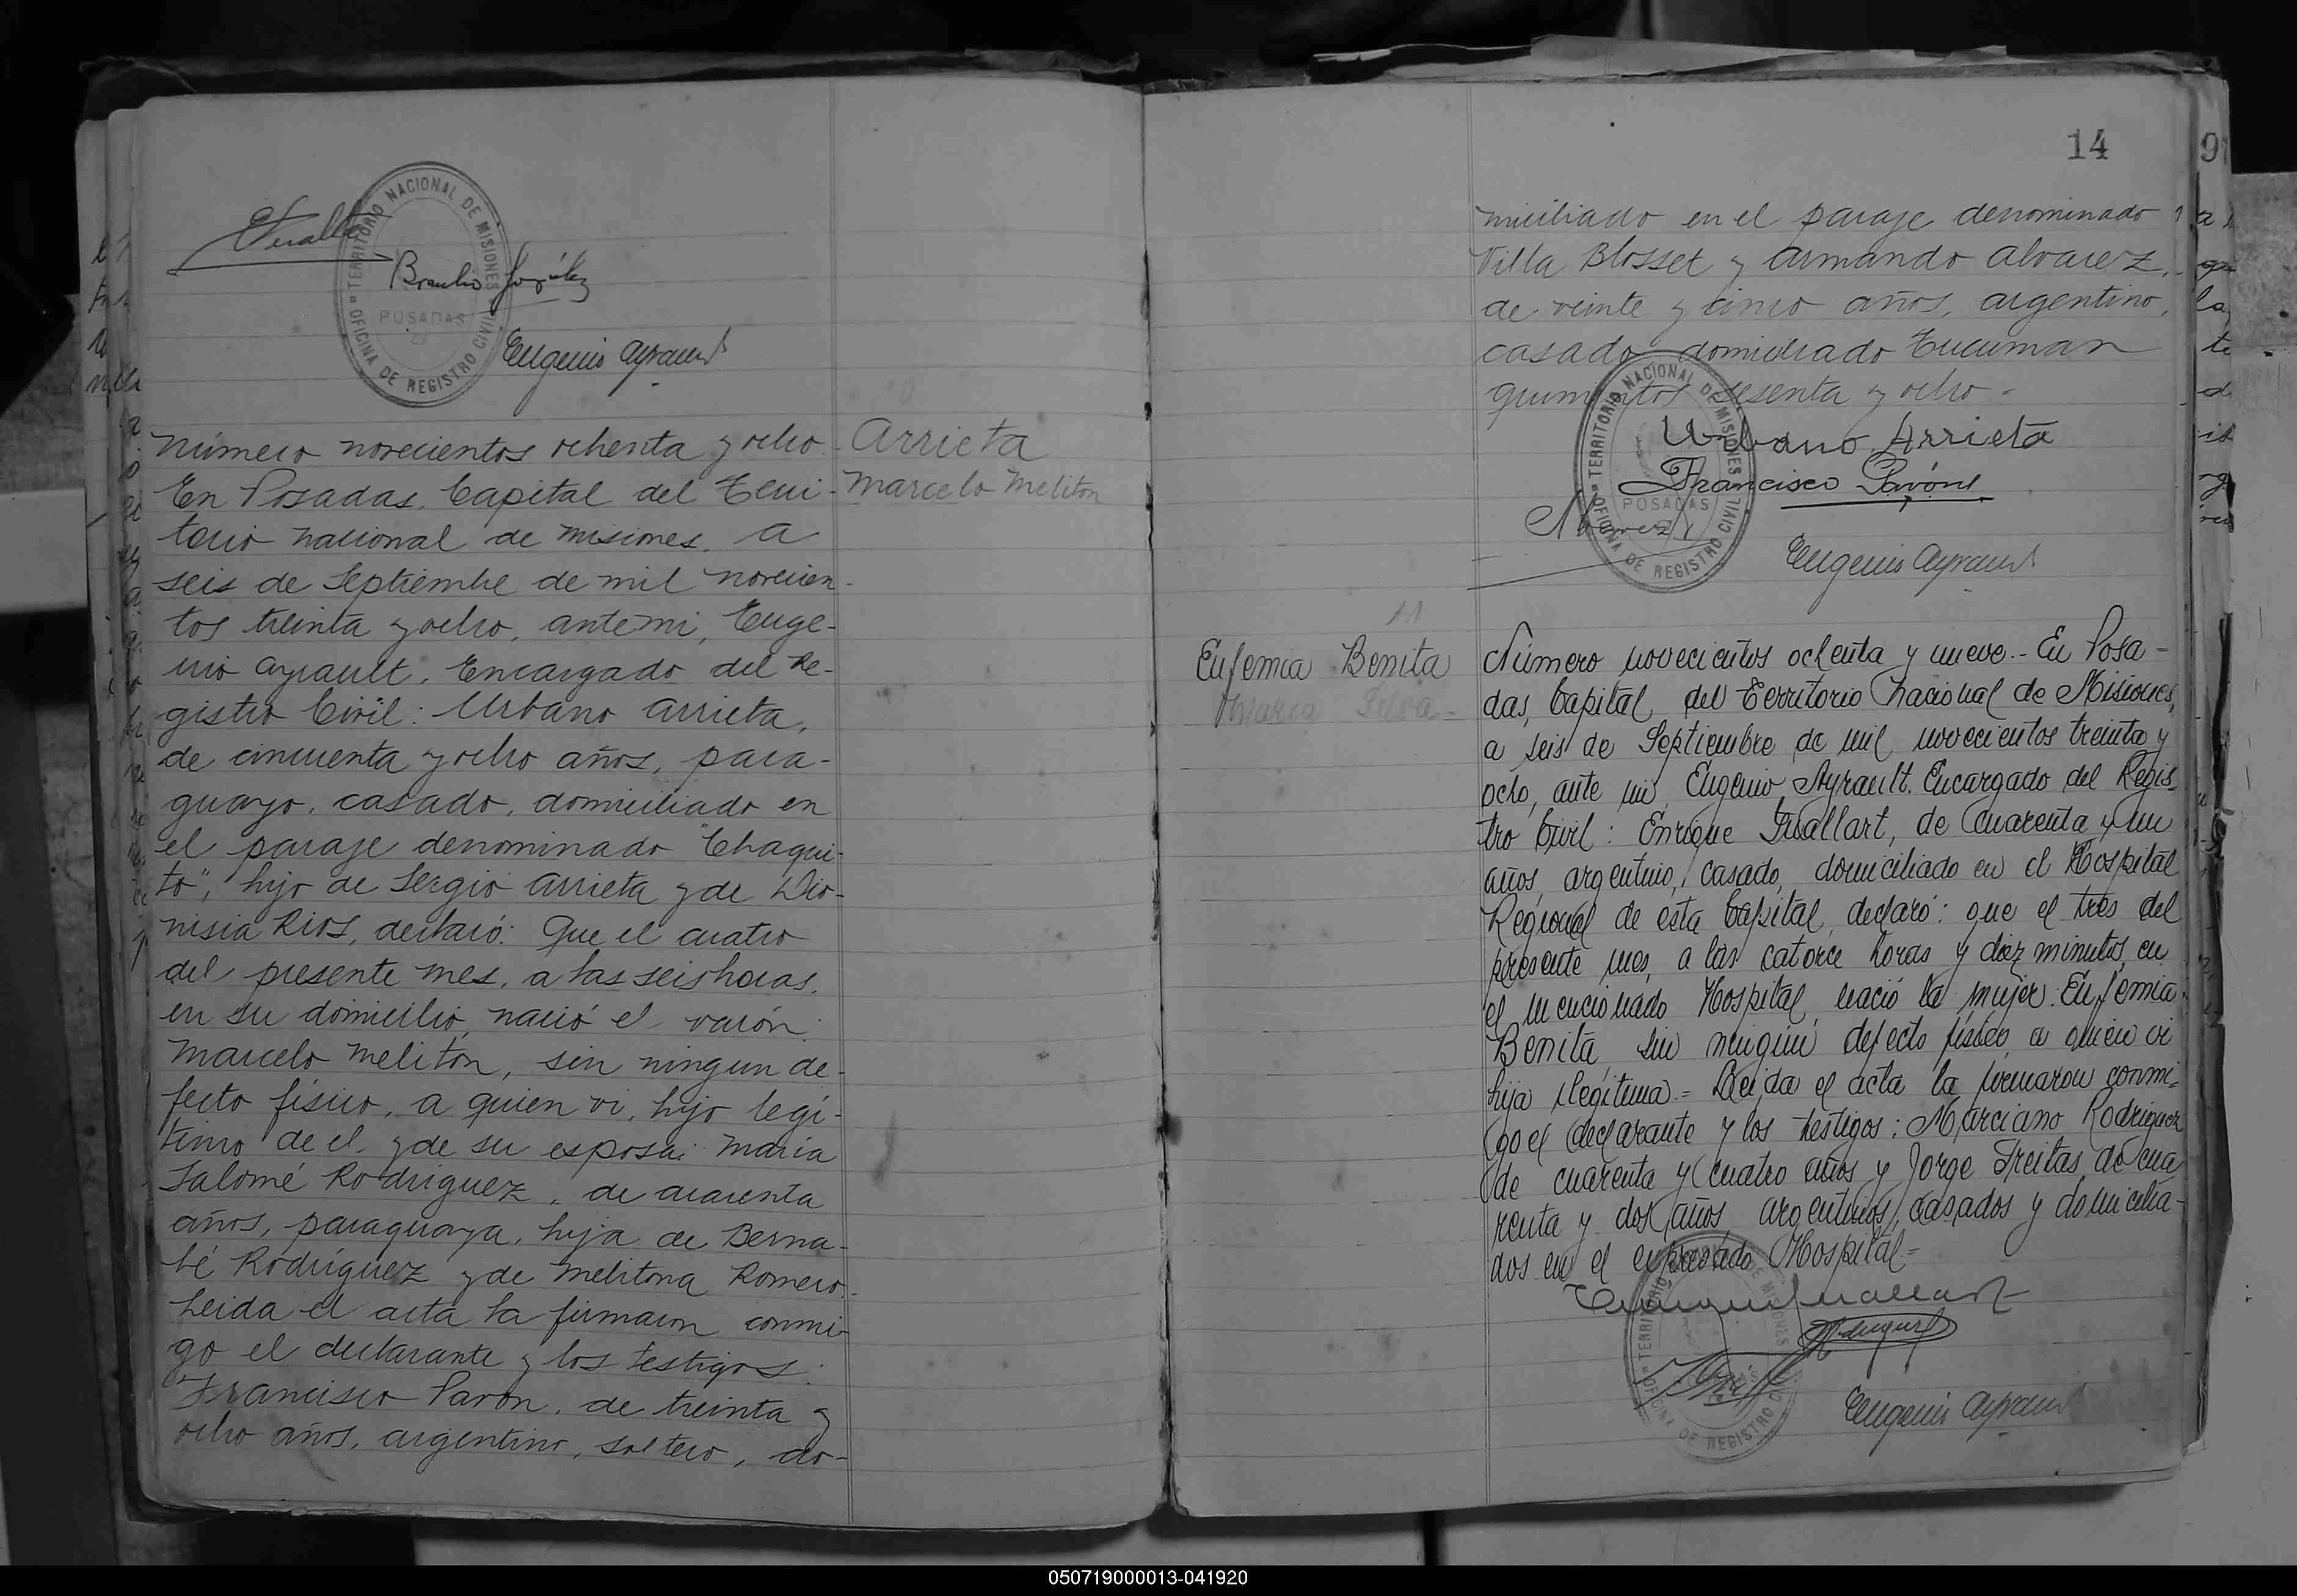 TERRITORIO NACIONAL DE MISIONES
POSADAS
OFICINA DE REGISTRO CIVIL
Braulio González
Eugenio Ayrault
Número novecientos ochenta y ocho.
En Posadas, Capital del Terri-
torio Nacional de Misiones, a
seis de Septiembre de mil novecien-
tos treinta y ocho, ante mi, Euge-
nio Ayrault, Encargado del Re-
gistro Civil: Urbano Arrieta,
de cincuenta y ocho años, para-
guayo, casado, domiciliado en
el paraje denominado "Chaqui-
to", hijo de Sergio Arrieta y de Dio-
nisia Rios, declaró: Que el cuatro
del presente mes, a las seis horas,
en su domicilio, nació el varón:
Marcelo Melitón, sin ningun de-
fecto físico, a quien vi, hijo legí-
timo de el, y de su esposa: María
Salomé Rodríguez, de cuarenta
años, paraguaya, hija de Berna-
bé Rodríguez y de Melitona Romero.
Leida el acta la firmaron conmi-
go el declarante y los testigos:
Francisco Pavón, de treinta y
ocho años, argentino, soltero, do-
Arrieta
Marcelo Meliton
14
miciliado en el paraje denominado
Villa Blosset y Armando Alvarez,
de veinte y cinco años, argentino,
casado, domiciliado Tucuman
quinientos sesenta y ocho -
TERRITORIO NACIONAL DE MISIONES
POSADAS
OFICINA DE REGISTRO CIVIL
Urbano Arrieta
Francisco Pavón
Alvarez
Eugenio Ayrault
11
Eufemia Benita
Maria Silva -
Número novecientos ochenta y nueve.- En Posa-
das, Capital del Territorio Nacional de Misiones,
a seis de Septiembre de mil novecientos treinta y
ocho, ante mi, Eugenio Ayrault. Encargado del Regis-
tro Civil: Enrique Guallart, de cuarenta y un
años, argentino, casado, domiciliado en el Hospital
Regional de esta Capital, declaró: que el tres del
presente mes, a las catorce horas y diez minutos, en
el mencionado Hospital, nació la mujer: Eufemia
Benita, sin ningún defecto físico, a quien vi
hija ilegítima.= Leida el acta la firmaron conmi-
go el declarante y los testigos: Marciano Rodriguez
de cuarenta y cuatro años y Jorge Freitas, de cua
renta y dos años, argentinos, casados y domicilia-
dos en el expresado Hospital.=
Enrique Guallart
Rodriguez
TERRITORIO NACIONAL DE MISIONES
OFICINA DE REGISTRO CIVIL
Eugenio Ayrault
050719000013-041920